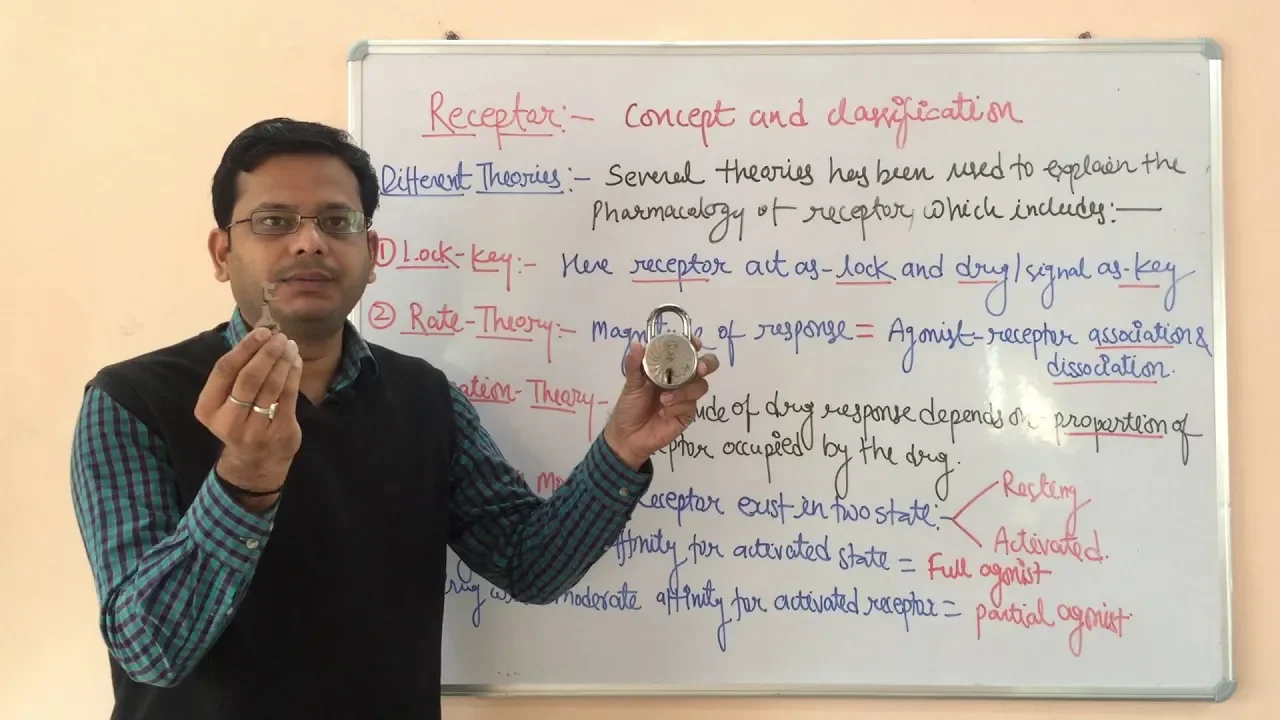 Receptor:- Concept and classification
Different Theories:- Several theories has been used to explain the
Pharmacology of receptor, which includes:—
① Lock-Key:- Here receptor act as-lock and drug/signal as-key
② Rate-Theory:- of response = Agonist-receptor association &
dissociation.
ation-Theory- ude of drug response depends on-proportion of
eptor occupied by the drug.
Receptor exist in two state:- Resting
Activated.
affinity for activated state = Full agonist
moderate affinity for activated receptor = partial agonist